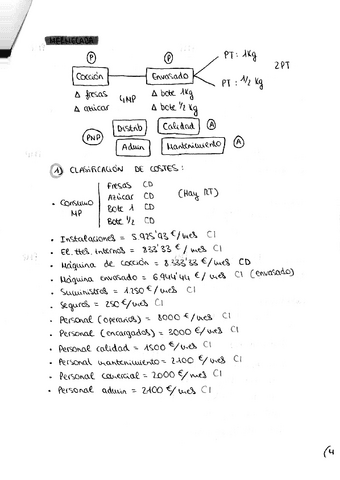 MERMELADA
P
P
PT: 1Kg
2PT
PT: 1/2 Kg
Cocción
Envasado
Δ fresas
4MP
Δ bote 1Kg
Δ azúcar
Δ bote 1/2 Kg
PNP
Distrib
Calidad
A
Admin
Mantenimiento
A
1) CLASIFICACIÓN DE COSTES:
· Consumo MP
Fresas CD
Azúcar CD
Bote 1 CD
Bote 1/2 CD
(Hay RT)
· Instalaciones = 5.925'93 €/mes CI
· El. ttes. internos = 833'33 €/mes CI
· Máquina de cocción = 8.333'33 €/mes CD
· Máquina envasado = 6.944'44 €/mes CI (envasado)
· Suministros = 1250 €/mes CI
· Seguros = 250 €/mes CI
· Personal (operarios) = 8000 €/mes CI
· Personal (encargados) = 3000 €/mes CI
· Personal calidad = 1500 €/mes CI
· Personal mantenimiento = 2100 €/mes CI
· Personal comercial = 2000 €/mes CI
· Personal admin = 2100 €/mes CI
(4